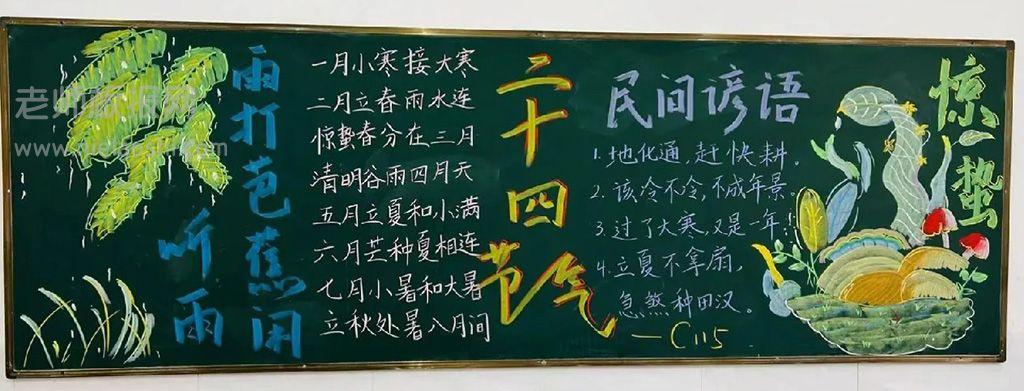 雨打芭蕉闲
听雨
一月小寒接大寒
二月立春雨水连
惊蛰春分在三月
清明谷雨四月天
五月立夏和小满
六月芒种夏相连
七月小暑和大暑
立秋处暑八月间
二十四
节气
民间谚语
1. 地化通,赶快耕。
2. 该冷不冷,不成年景。
3. 过了大寒,又是一年!
4. 立夏不拿扇,
急煞种田汉。
—C115
惊蛰